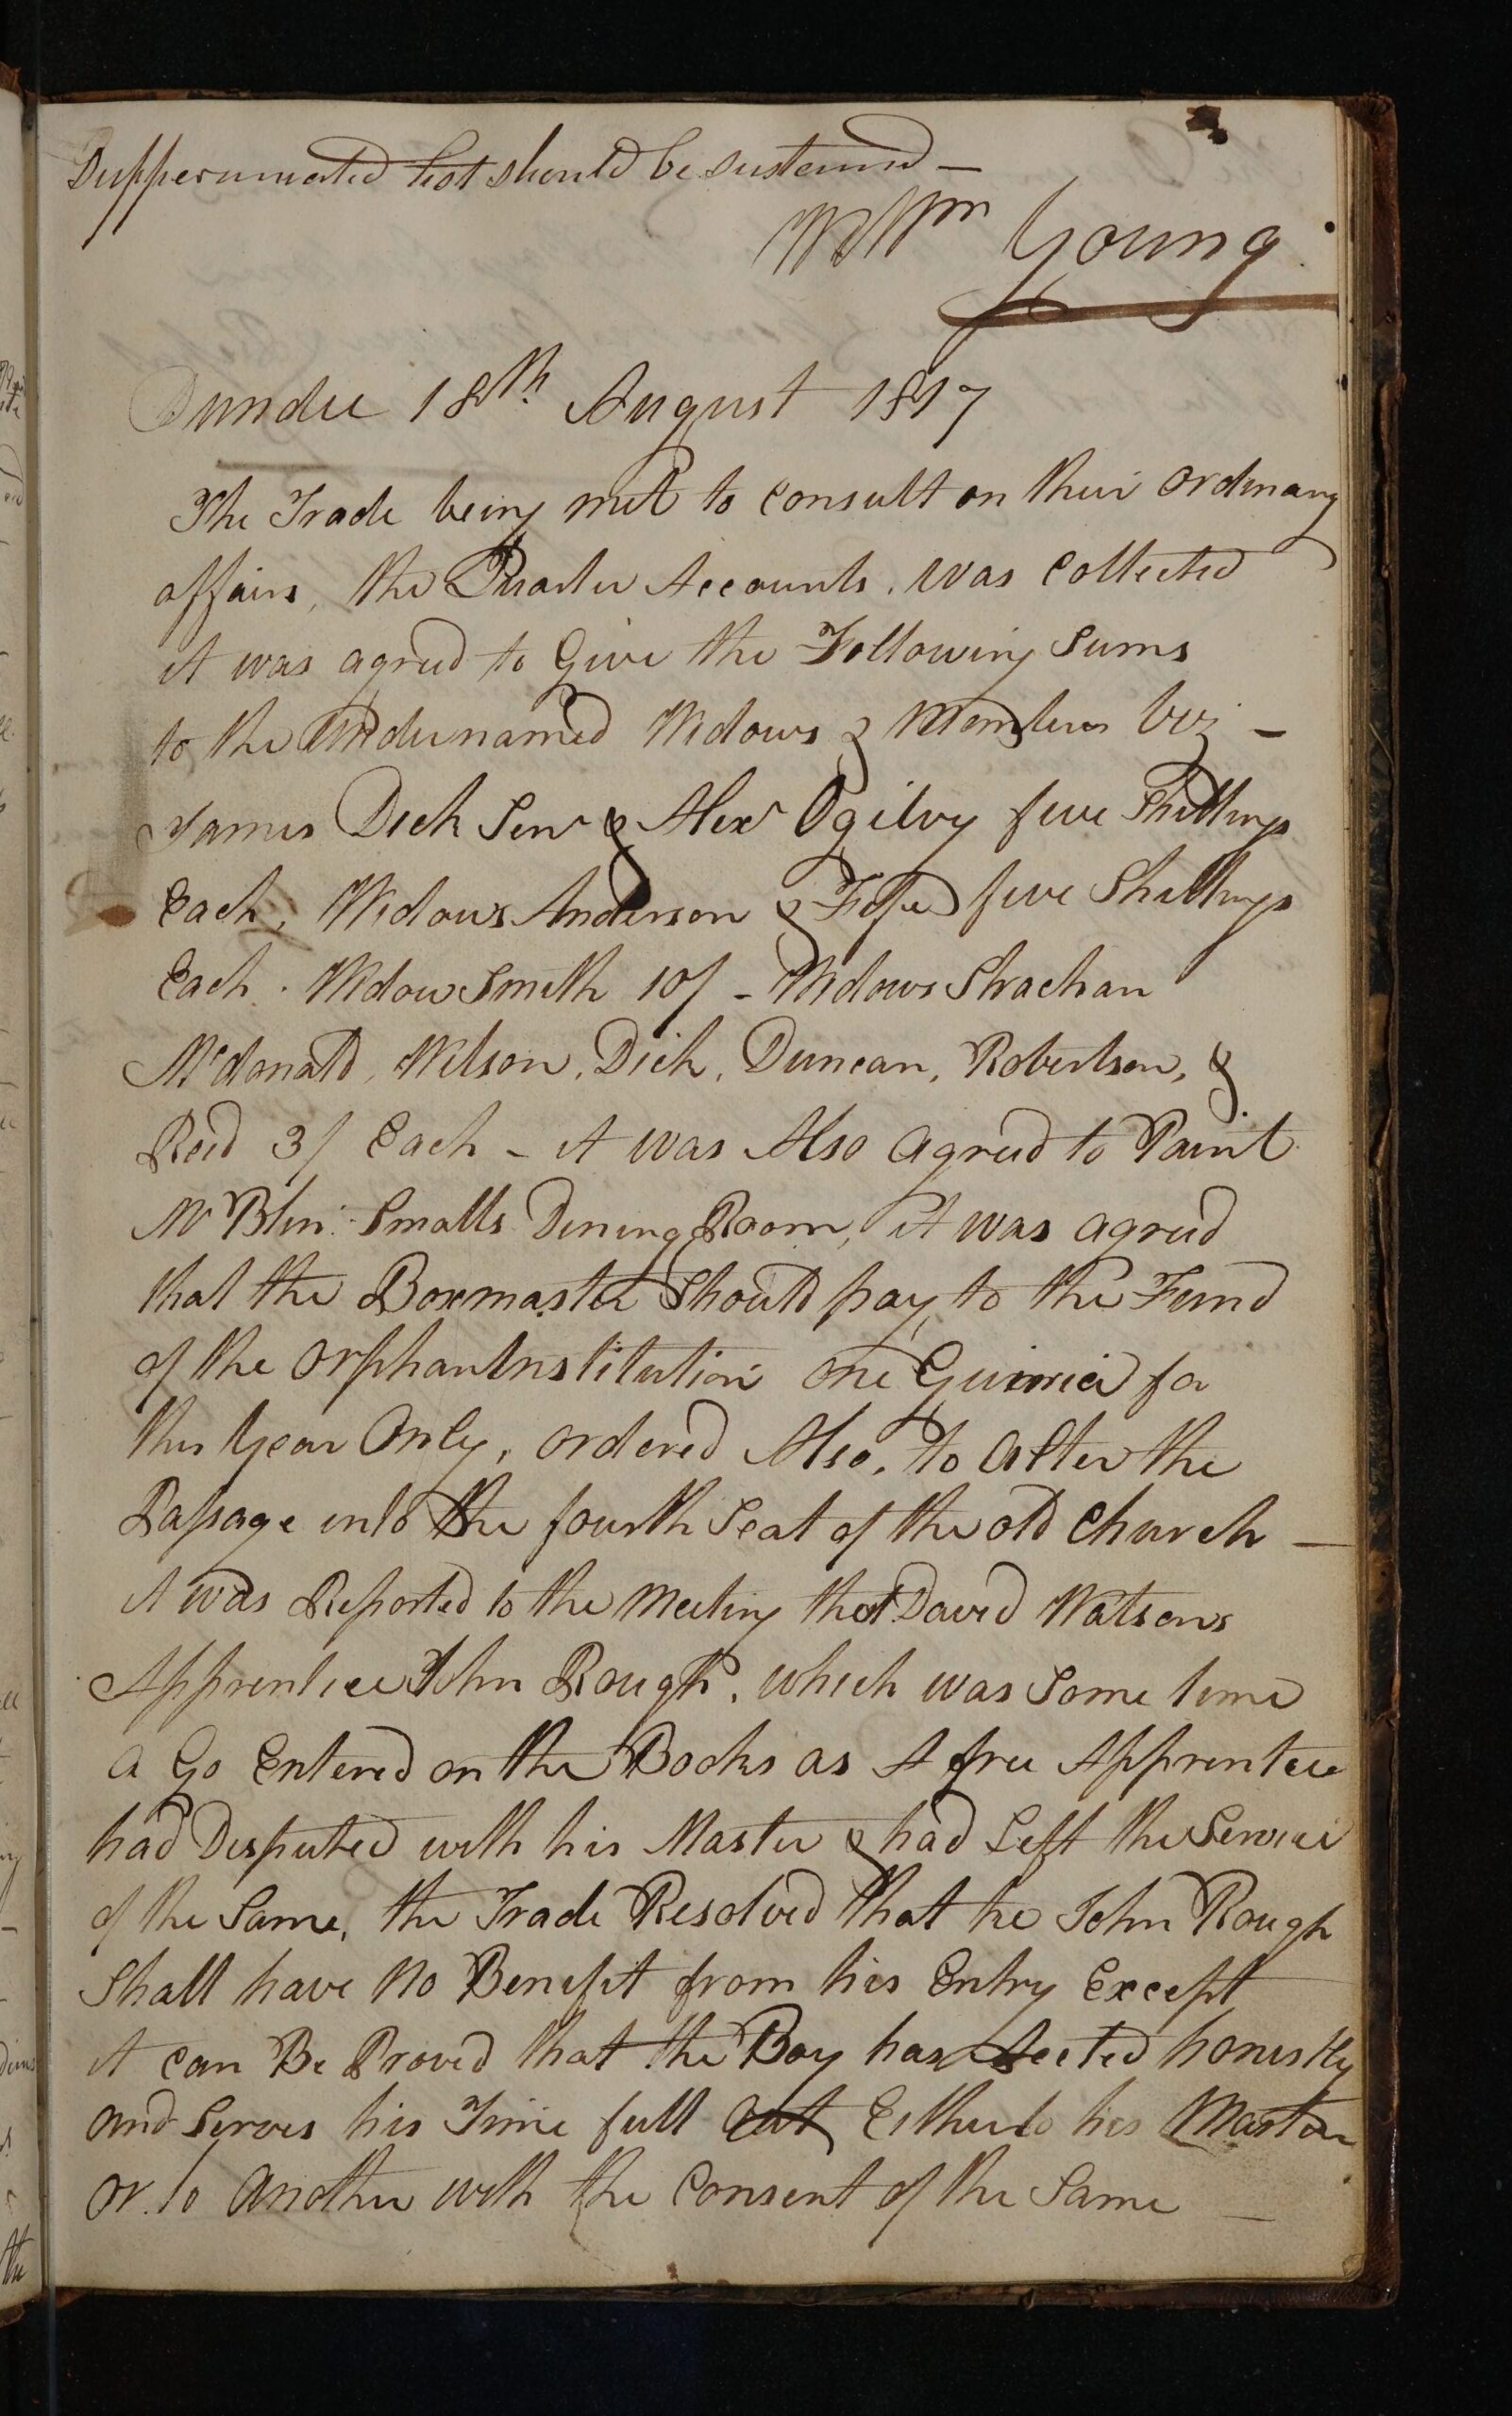 Supperannuated list should be susteained —
Wm Young
Dundee 18th August 1817
The Trade being met to Consult on their ordinary
affairs, the Quarter Accounts, was Collected
it was agreed to Give the Following Sums
to the Undernamed Widows & Members viz —
James Dick Senr & Alexr Ogilvy five Shillings
Each, Widows Anderson & Fife five Shillings
Each. Widow Smith 10/ - Widows Strachan
McDonald, Wilson, Dick, Duncan, Robertson, &
Reid 3/ Each - it was Also agreed to Paint
Mr Smalls Dining Room, it was agreed
that the Boxmaster Should pay to the Fund
of the Orphan Institution one Guinnea for
this Year Only, ordered Also, to alter the
Passage into the fourth Seat of the old Church —
it was Reported to the Meeting that David Watsons
Apprentice John Rough, which was Some time
a Go Entered on the Books as A free Apprentice
had Disputed with his Master & had Left the Service
of the Same, the Trade Resolved that he John Rough
Shall have No Benefit from his Entry Except
it can Be Proved that the Boy has Acted honestly
and Serves his Time full out Either to his Master
or to Another with the Consent of the Same —